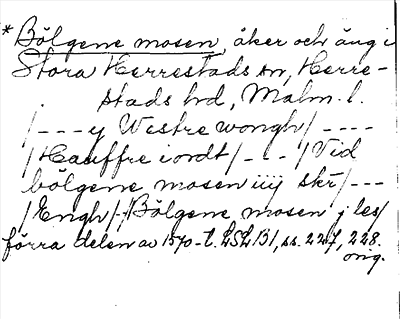 * Bölgene mosen, åker och äng i
Stora Herrestads sn, Herre-
stads hd, Malm. l.
/---y Westre wongh/----
/Hauffre iordt/---/Vid
bölgene mosen iiij skr/---
/Engh/-/Bölgene mosen j les/
förra delen av 1570-t. LSLB1, ss. 227, 228.
orig.